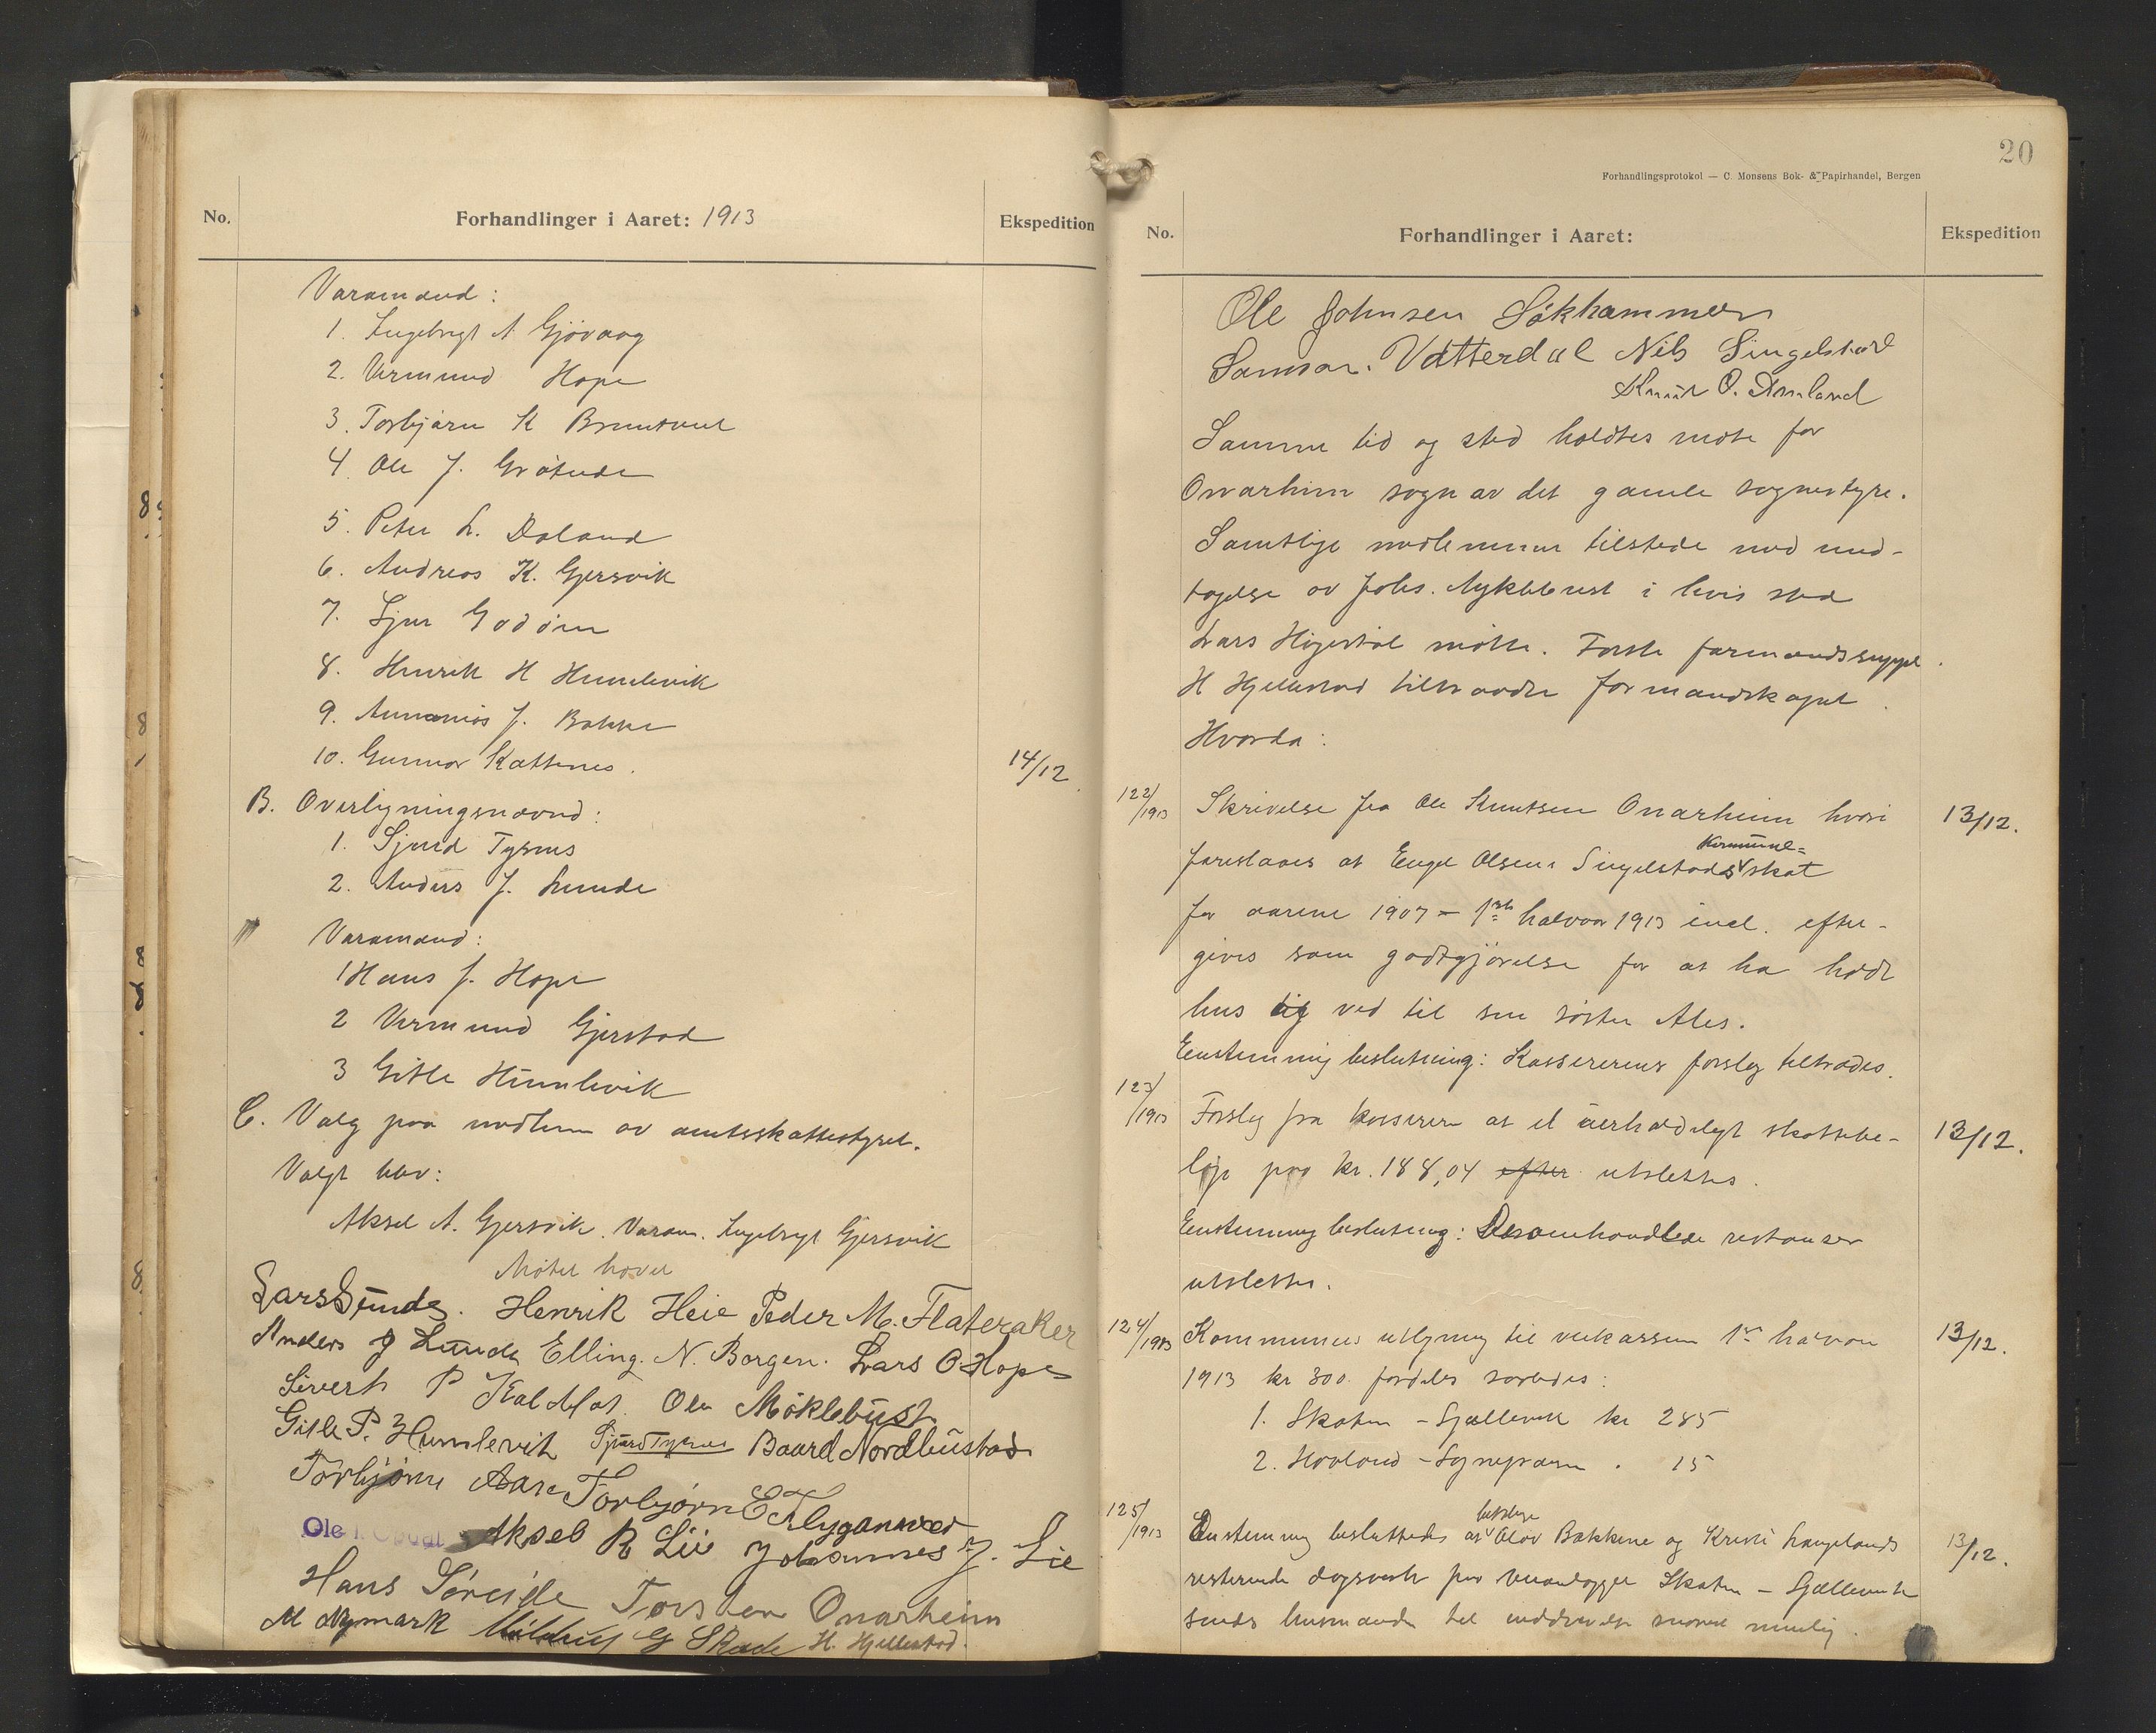 No.
Forhandlinger i Aaret: 1913
Ekspedition
Varamænd:
1. Ingebrigt A Gjøvaag
2. Vermund Hope
3. Torbjørn K Bruntveit
4 Ole J.
5. Peter L. Daland
6. Andreas K. Gjersvik
7. Sjur Godøen
8. Henrik H Humlevik
9. Ananias J. Bakke
10. Gunnar Kattenes.
14/12
B. Overligningsnævnd:
1. Sjurd Tysnes
2. Anders J. Lunde
Varamænd:
1 Hans J. Hope
2 Vermund Gjerstad
3 Gitle Humlevik
C. Valg paa medlem av amtsskattestyret.
Valgt blev:
Aksel A. Gjersvik. Varam. Ingebrigt Gjersvik
Møtet hævet
Lars Sunde. Henrik Heie Peder M. Flateraker
Anders J Lunde Elling. N. Borgen. Lars O Hope
Sivert P Ole Møklebust
Gitle P. Humlevik Sjurd Tysnes Baard Nordbustad
Torbjørn Aase Torbjørn E Flygansvær
Ole Aksel R Lie Johannes J. Lie
Hans Søreide Torsten Onarheim
M Nymark G Skade H. Hjellestad.
20
Forhandlingsprotokol — C. Monsens Bok- & Papirhandel, Bergen
No.
Forhandlinger i Aaret:
Ekspedition
Ole Johnsen Søkhammeren
Samson. Vatterdal Nils Singelstad
Knut O. Amland
Samme tid og sted holdtes møte for
Onarheim sogn av det gamle sognestyre.
Samtlige medlemmer tilstede med und-
tagelse av Johs. Myklebust i hvis sted
Lars Høgestøl møtte. Første formandssuppl.
H Hjellestad tiltraadte formandskapet.
Hvorda:
122/1913
Skrivelse fra Ole Knutsen Onarheim hvori
13/12.
foreslaaes at Engel Olsens Singelstads kommune= skat
for aarene 1907 – 1ste halvaar 1913 incl. efter-
gives som godtgjørelse for at ha holdt
hus og ved til sin søster Ales.
Enstemmig beslutning: Kassererens forslag tiltrædes.
123/1913
Forslag fra kasserer at et uerholdeligt skattebe-
13/12.
løp paa kr. 188,04 efter utslettes.
Enstemmig beslutning: Desomhandlede restanser
utslettes.
124/1913
Kommunens utligning til veikassen 1ste halvaar
13/12.
1913 kr 300. fordeles saaledes:
1. Skaten – Gjællevik kr 285
2. Hovland – Sogneparen . 15
125/1913
Enstemmig besluttedes at Olav Bakkene og Kristi Hauglands
13/12.
resterende dagsverk paa veianlægget Skaten – Gjællevik
sendes lensmanden til inddrivelse snarest mulig.